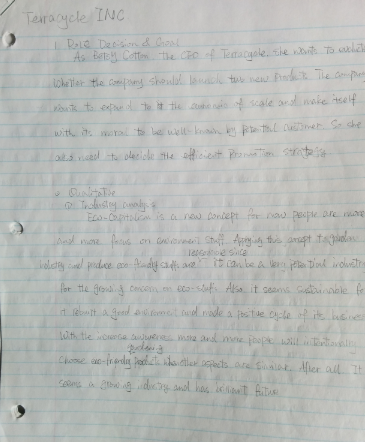 Terracycle INC
1. Role Decision & Goal
As Betsy Cotton, the CFO of Terracycle, she wants to
whether the company should launch two new products. The company
wants to expand the economic of scale and make itself
with its moral to be well-known by potential customer. So she
also need to decide the efficient promotion strategy
Qualitative
Industry analysis
Eco-Capitalism is a new concept for now people are more
and more focus on environment stuff. Applying this concept to
industry and produce eco-friendly stuffs are It can be a very potential industry
for the growing concern on eco-stuffs. Also, it seems sustainable for
it a good environment and made a positive cycle of its business
With the increase awareness more and more people will intentionally
choose eco-friendly product when other aspects are similar. After all, It
seems a growing industry and has future